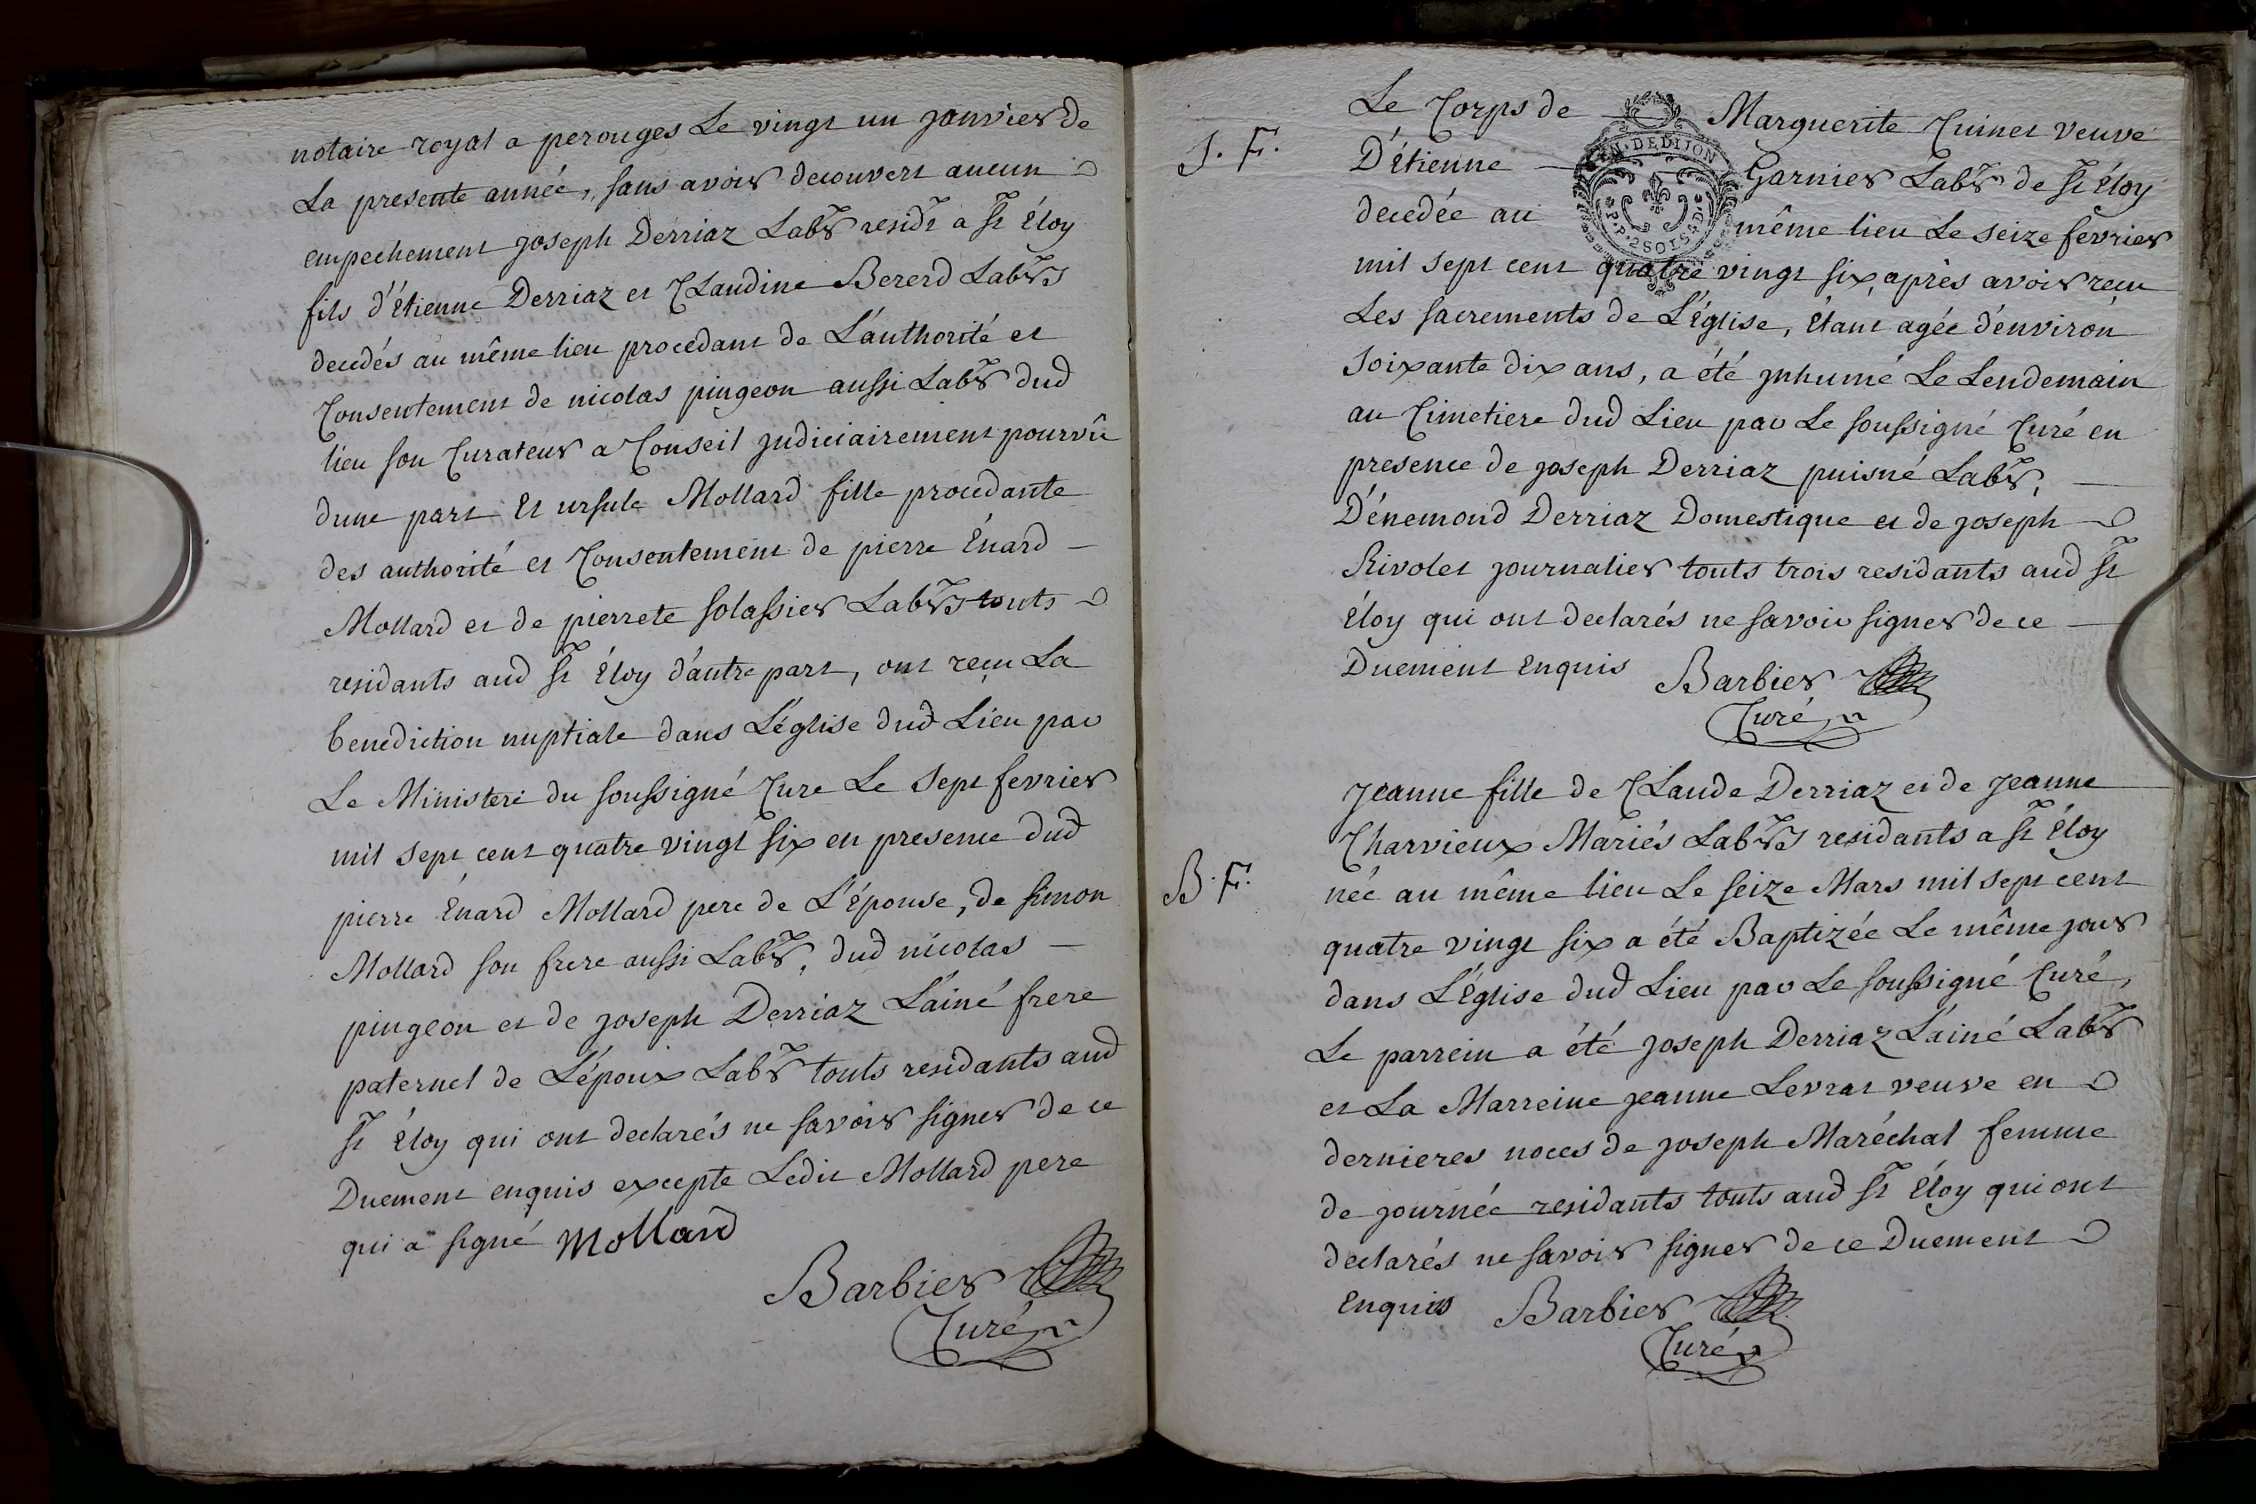 notaire royal a perouges Le vingt un janvier de
La presente année, sans avoir decouvert aucun
empechement joseph Derriaz Labr residt a St Éloy
fils d'Étienne Derriaz et Claudine Bererd Labrs
decedés au même lieu procedant de L'authorité et
Consentement de nicolas pingeon aussi Labr dud
lieu son Curateur a Conseil judiciairement pourvû
dune part Et ursule Mollard fille procedante
des authorité et Consentement de pierre Énard
Mollard et de pierrete solassier Labrs touts
residants aud St Éloy d'autre part, ont reçu La
benediction nuptiale dans L'église dud Lieu par
Le Ministere du soussigné Cure Le sept fevrier
mil sept cent quatre vingt six en presence dud
pierre Énard Mollard pere de L'épouse, de simon
Mollard son frere aussi Labr, dud nicolas
pingeon et de joseph Derriaz L'ainé frere
paternel de L'époux Labr touts residants aud
St Éloy qui ont declarés ne savoir signer de ce
Duement enquis excepte Ledit Mollard pere
qui a signé Mollard
Barbier
Curé
Le Corps de Marguerite Cuinet veuve
S. F.
D'Étienne Garnier Labr de St Éloy
EN. DE DIJON
P. P. 2 SOLS 4 D.
decedée au même lieu Le seize fevrier
mil sept cent quatre vingt six, après avoir reçu
Les sacrements de L'Église, Étant agée d'environ
soixante dix ans, a été inhumé Le Lendemain
au Cimetiere dud Lieu par Le soussigné Curé en
presence de joseph Derriaz puisné Labr,
D'énemond Derriaz Domestique et de joseph
Rivolet journalier touts trois residants aud St
Éloy qui ont declarés ne savoir signer de ce
Duement Enquis Barbier
Curé
Jeanne fille de Claude Derriaz et de Jeanne
Charvieux Mariés Labrs residants a St Éloy
B. F.
née au même lieu Le seize Mars mil sept cent
quatre vingt six a été Baptizée Le même jour
dans L'Église dud Lieu par Le soussigné Curé,
Le parrein a été joseph Derriaz L'ainé Labr
et La Marreine jeanne Levrat veuve en
dernieres noces de joseph Maréchal femme
de journée residants touts aud St Éloy qui ont
declarés ne savoir signer de ce Duement
Enquis Barbier
Curé